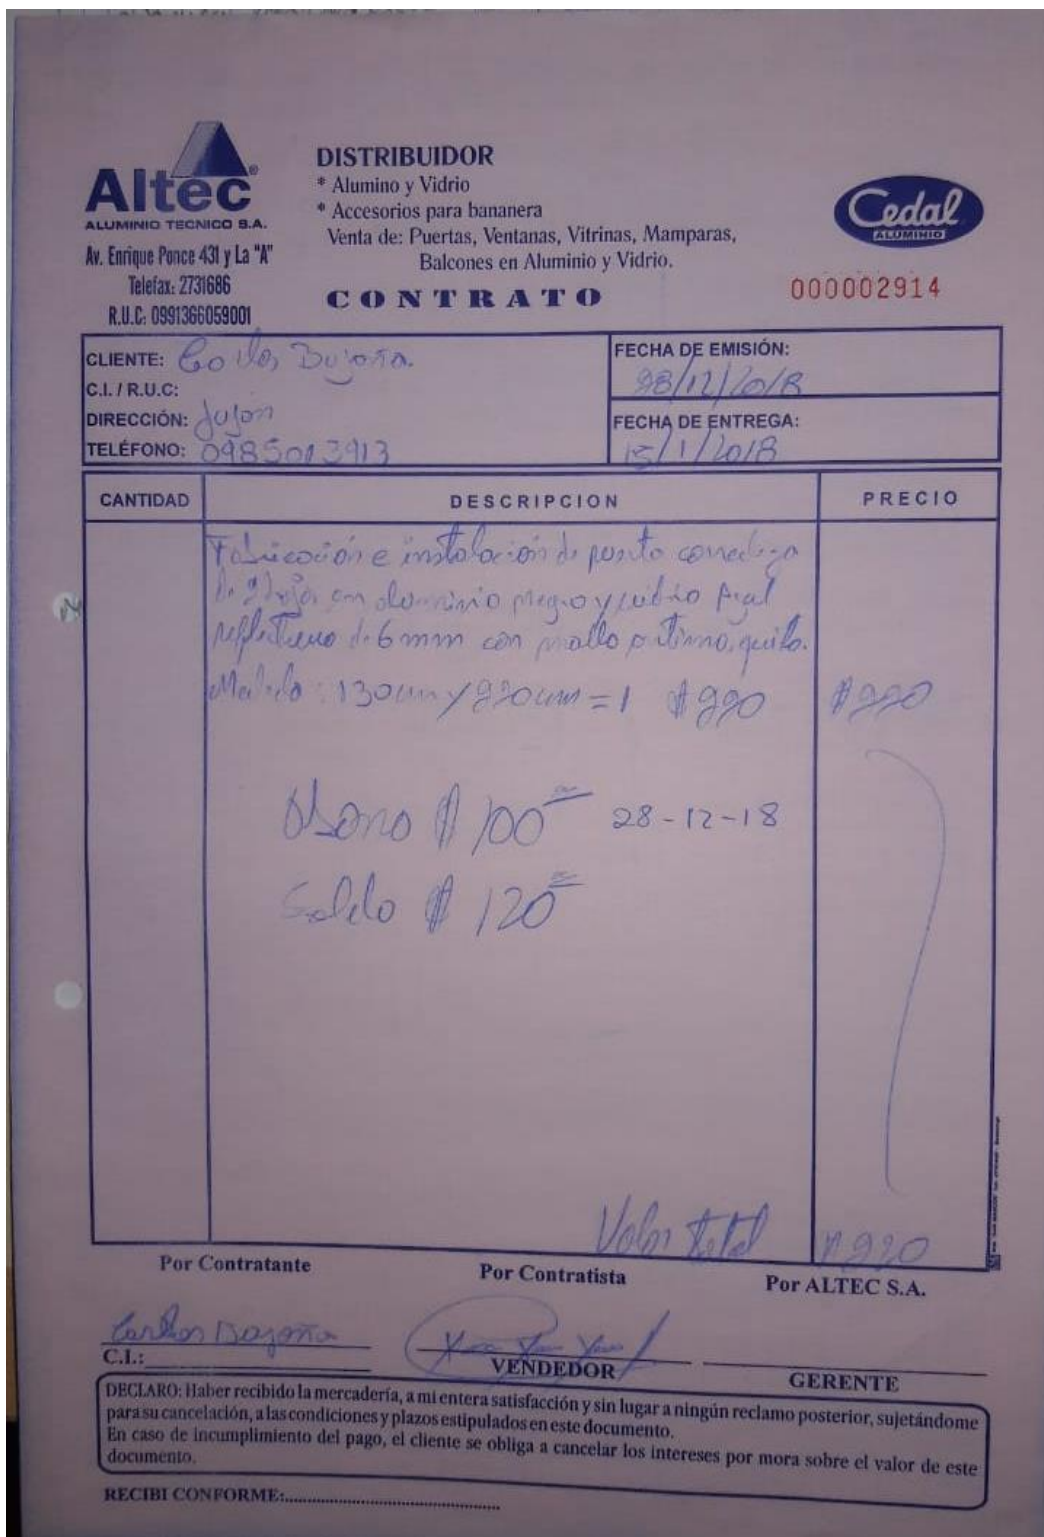 Altec®
ALUMINIO TECNICO S.A.
Av. Enrique Ponce 431 y La "A"
Telefax: 2731686
R.U.C: 0991366059001
DISTRIBUIDOR
* Alumino y Vidrio
* Accesorios para bananera
Venta de: Puertas, Ventanas, Vitrinas, Mamparas,
Balcones en Aluminio y Vidrio.
CONTRATO
Cedal
ALUMINIO
000002914
CLIENTE: Carlos Bajaña.
C.I. / R.U.C:
DIRECCIÓN: Jujan
TELÉFONO: 0985013913
FECHA DE EMISIÓN:
28/12/2018
FECHA DE ENTREGA:
15/1/2018
CANTIDAD DESCRIPCION PRECIO
Fabricación e instalación de puerta corrediza
de 2 hojas en aluminio negro y vidrio
reflectivo de 6mm con malla
Medida: 130cm x 220cm = 1 $220 $220
Abono $100 28-12-18
Saldo $120
Valor total $220
Por Contratante
Por Contratista
Por ALTEC S.A.
Carlos Bajaña
C.I.:
VENDEDOR
GERENTE
DECLARO: Haber recibido la mercadería, a mi entera satisfacción y sin lugar a ningún reclamo posterior, sujetándome
para su cancelación, a las condiciones y plazos estipulados en este documento.
En caso de incumplimiento del pago, el cliente se obliga a cancelar los intereses por mora sobre el valor de este
documento.
RECIBI CONFORME: